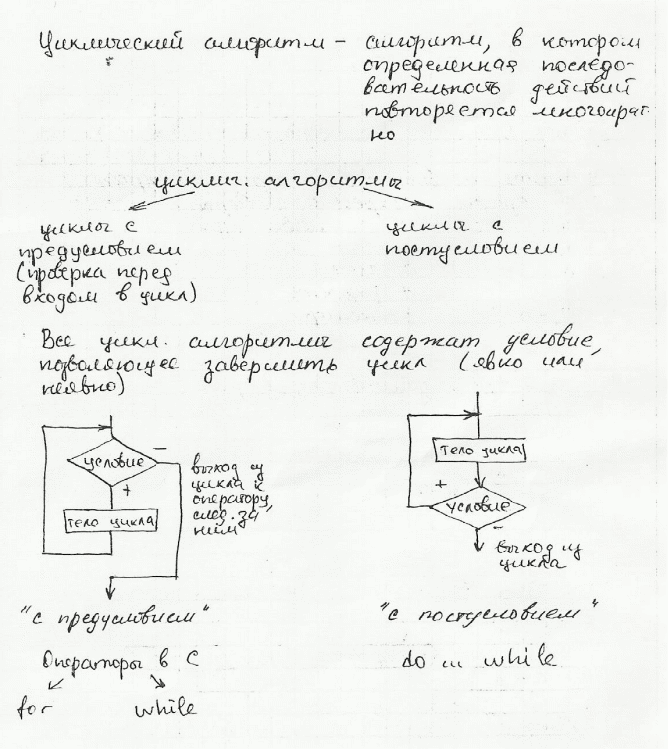 Циклический алгоритм – алгоритм, в котором
определенная последо-
вательность действий
повторяется многократ-
но
циклич. алгоритмы
циклы с
предусловием
(проверка перед
входом в цикл)
циклы с
постусловием
Все цикл. алгоритмы содержат условие,
позволяющее завершить цикл (явно или
неявно)
условие
–
+
тело цикла
выход из
цикла к
оператору,
след. за
ним
"с предусловием"
Операторы в C
for
while
тело цикла
+
условие
–
выход из
цикла
"с постусловием"
do ... while